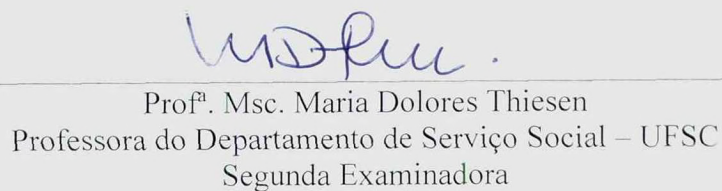 Profª. Msc. Maria Dolores Thiesen
Professora do Departamento de Serviço Social – UFSC
Segunda Examinadora